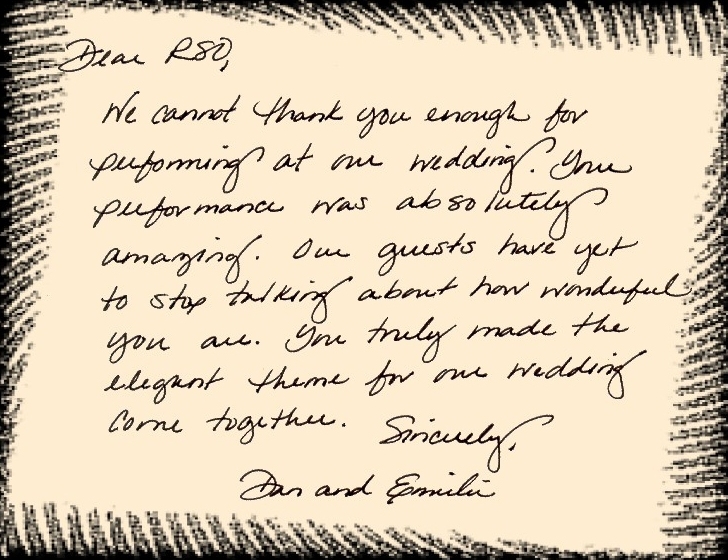 Dear RSO,
We cannot thank you enough for
performing at our wedding. Your
performance was absolutely
amazing. Our guests have yet
to stop talking about how wonderful
you are. You truly made the
elegant theme for our wedding
come together. Sincerely,
Dan and Emilie